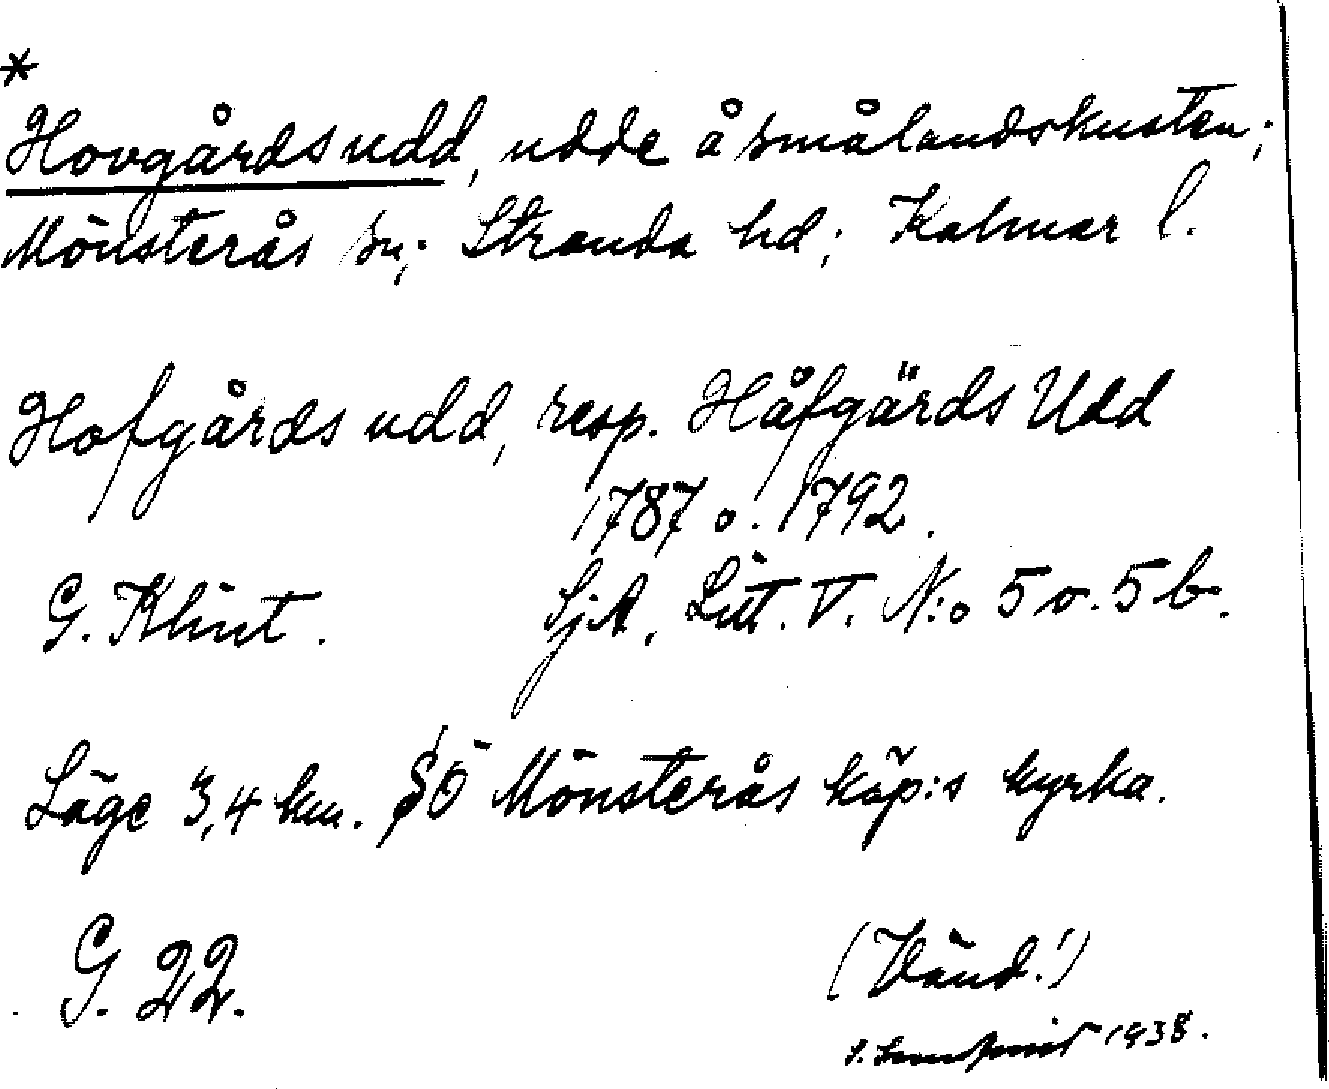 *
Hovgårds udd, udde å smålandskusten;
Mönsterås sn; Stranda hd; Kalmar l.
Hofgårds udd, resp. Håfgärds Udd
1787 o. 1792.
G. Klint. SjA, Litt. V. N:o 5 o. 5 b.
Läge 3,4 km. SÖ Mönsterås köp:s kyrka.
G. 22. (Vänd!)
1938.